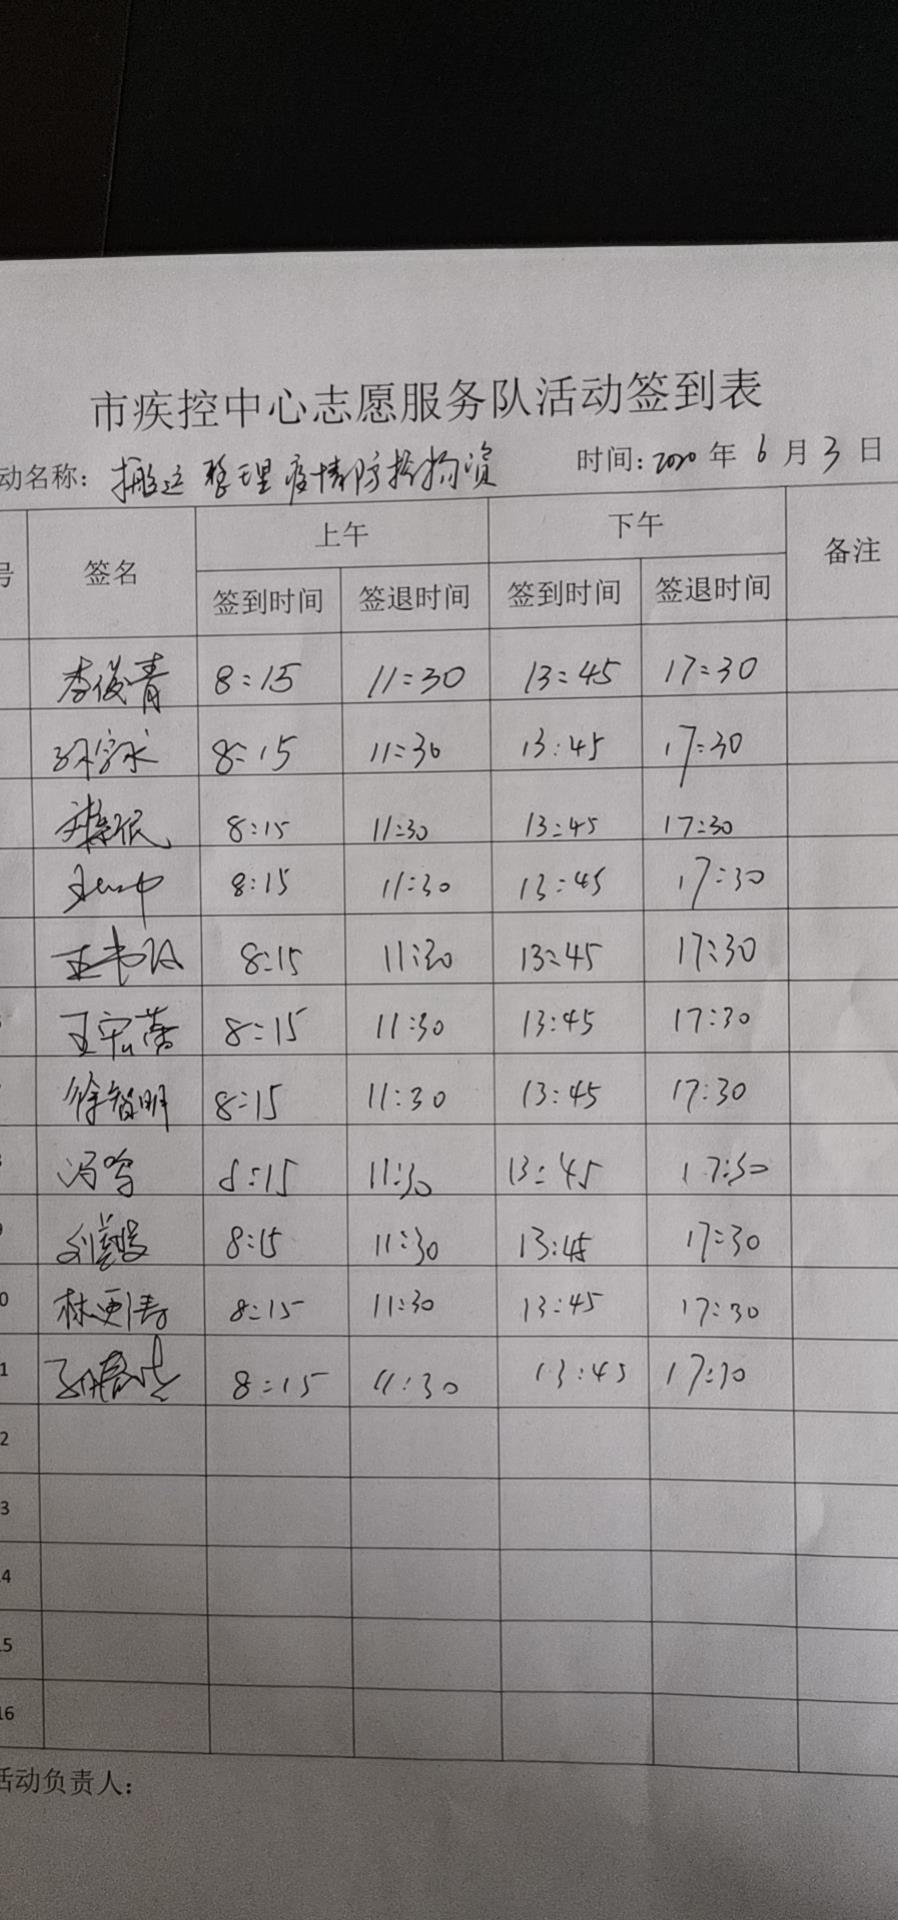 市疾控中心志愿服务队活动签到表
动名称: 搬运整理疫情防控物资 时间: 2020 年 6 月 3 日
号 签名 上午 下午 备注
签到时间 签退时间 签到时间 签退时间
李俊青 8:15 11:30 13:45 17:30
8:15 11:30 13:45 17:30
8:15 11:30 13:45 17:30
8:15 11:30 13:45 17:30
8:15 11:30 13:45 17:30
王宏蕾 8:15 11:30 13:45 17:30
徐智明 8:15 11:30 13:45 17:30
8:15 11:30 13:45 17:30
8:15 11:30 13:45 17:30
0 林更涛 8:15 11:30 13:45 17:30
1 8:15 11:30 13:45 17:30
2
3
4
15
16
活动负责人: